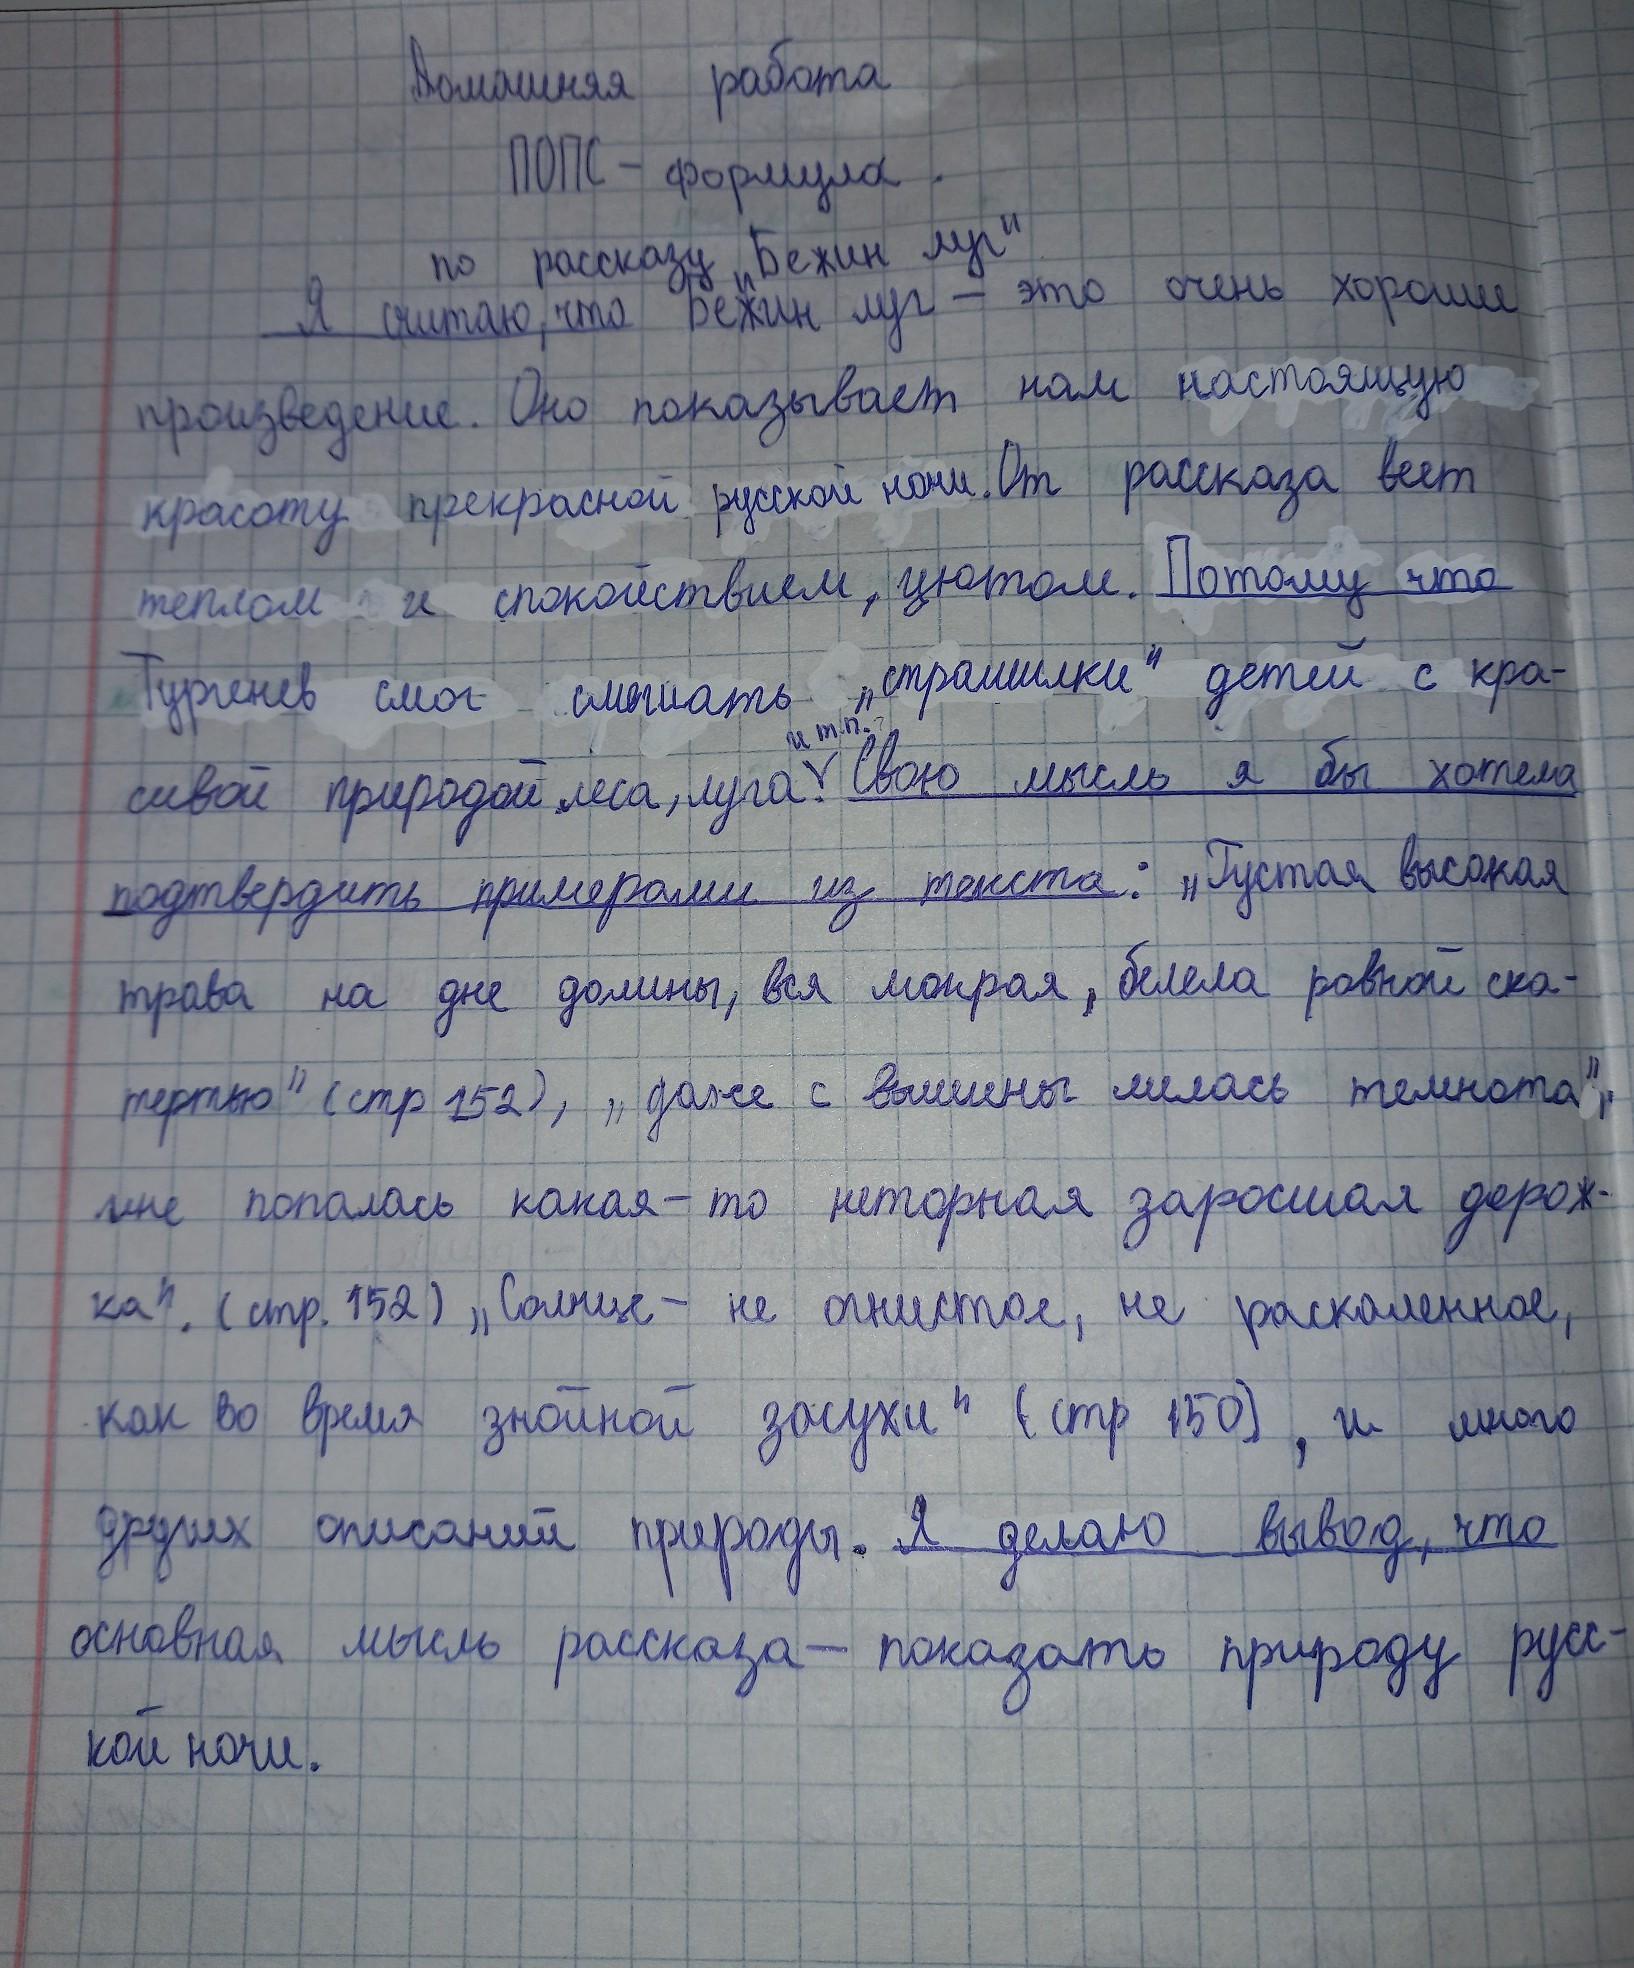 Домашняя работа
ПОПС - формула.
по рассказу „Бежин луг"
Я считаю, что Бежин луг - это очень хорошие
произведение. Оно показывает нам настоящую
красоту прекрасной русской ночи. От рассказа веет
теплом и спокойствием, уютом. Потому что
Тургенев смог смешать „страшилки" детей с кра-
и т.п.
сивой природой леса, луга. Свою мысль я бы хотела
подтвердить примерами из текста: „Густая высокая
трава на дне долины, вся мокрая, белела ровной ска-
тертью" (стр 152), „даже с вышины лилась темнота",„
мне попалась какая-то неторная заросшая дорож-
ка". (стр. 152) „Солнце - не огнистое, не раскаленное,
как во время знойной засухи" (стр 150), и много
других описаний природы. Я делаю вывод, что
основная мысль рассказа - показать природу русс-
кой ночи.